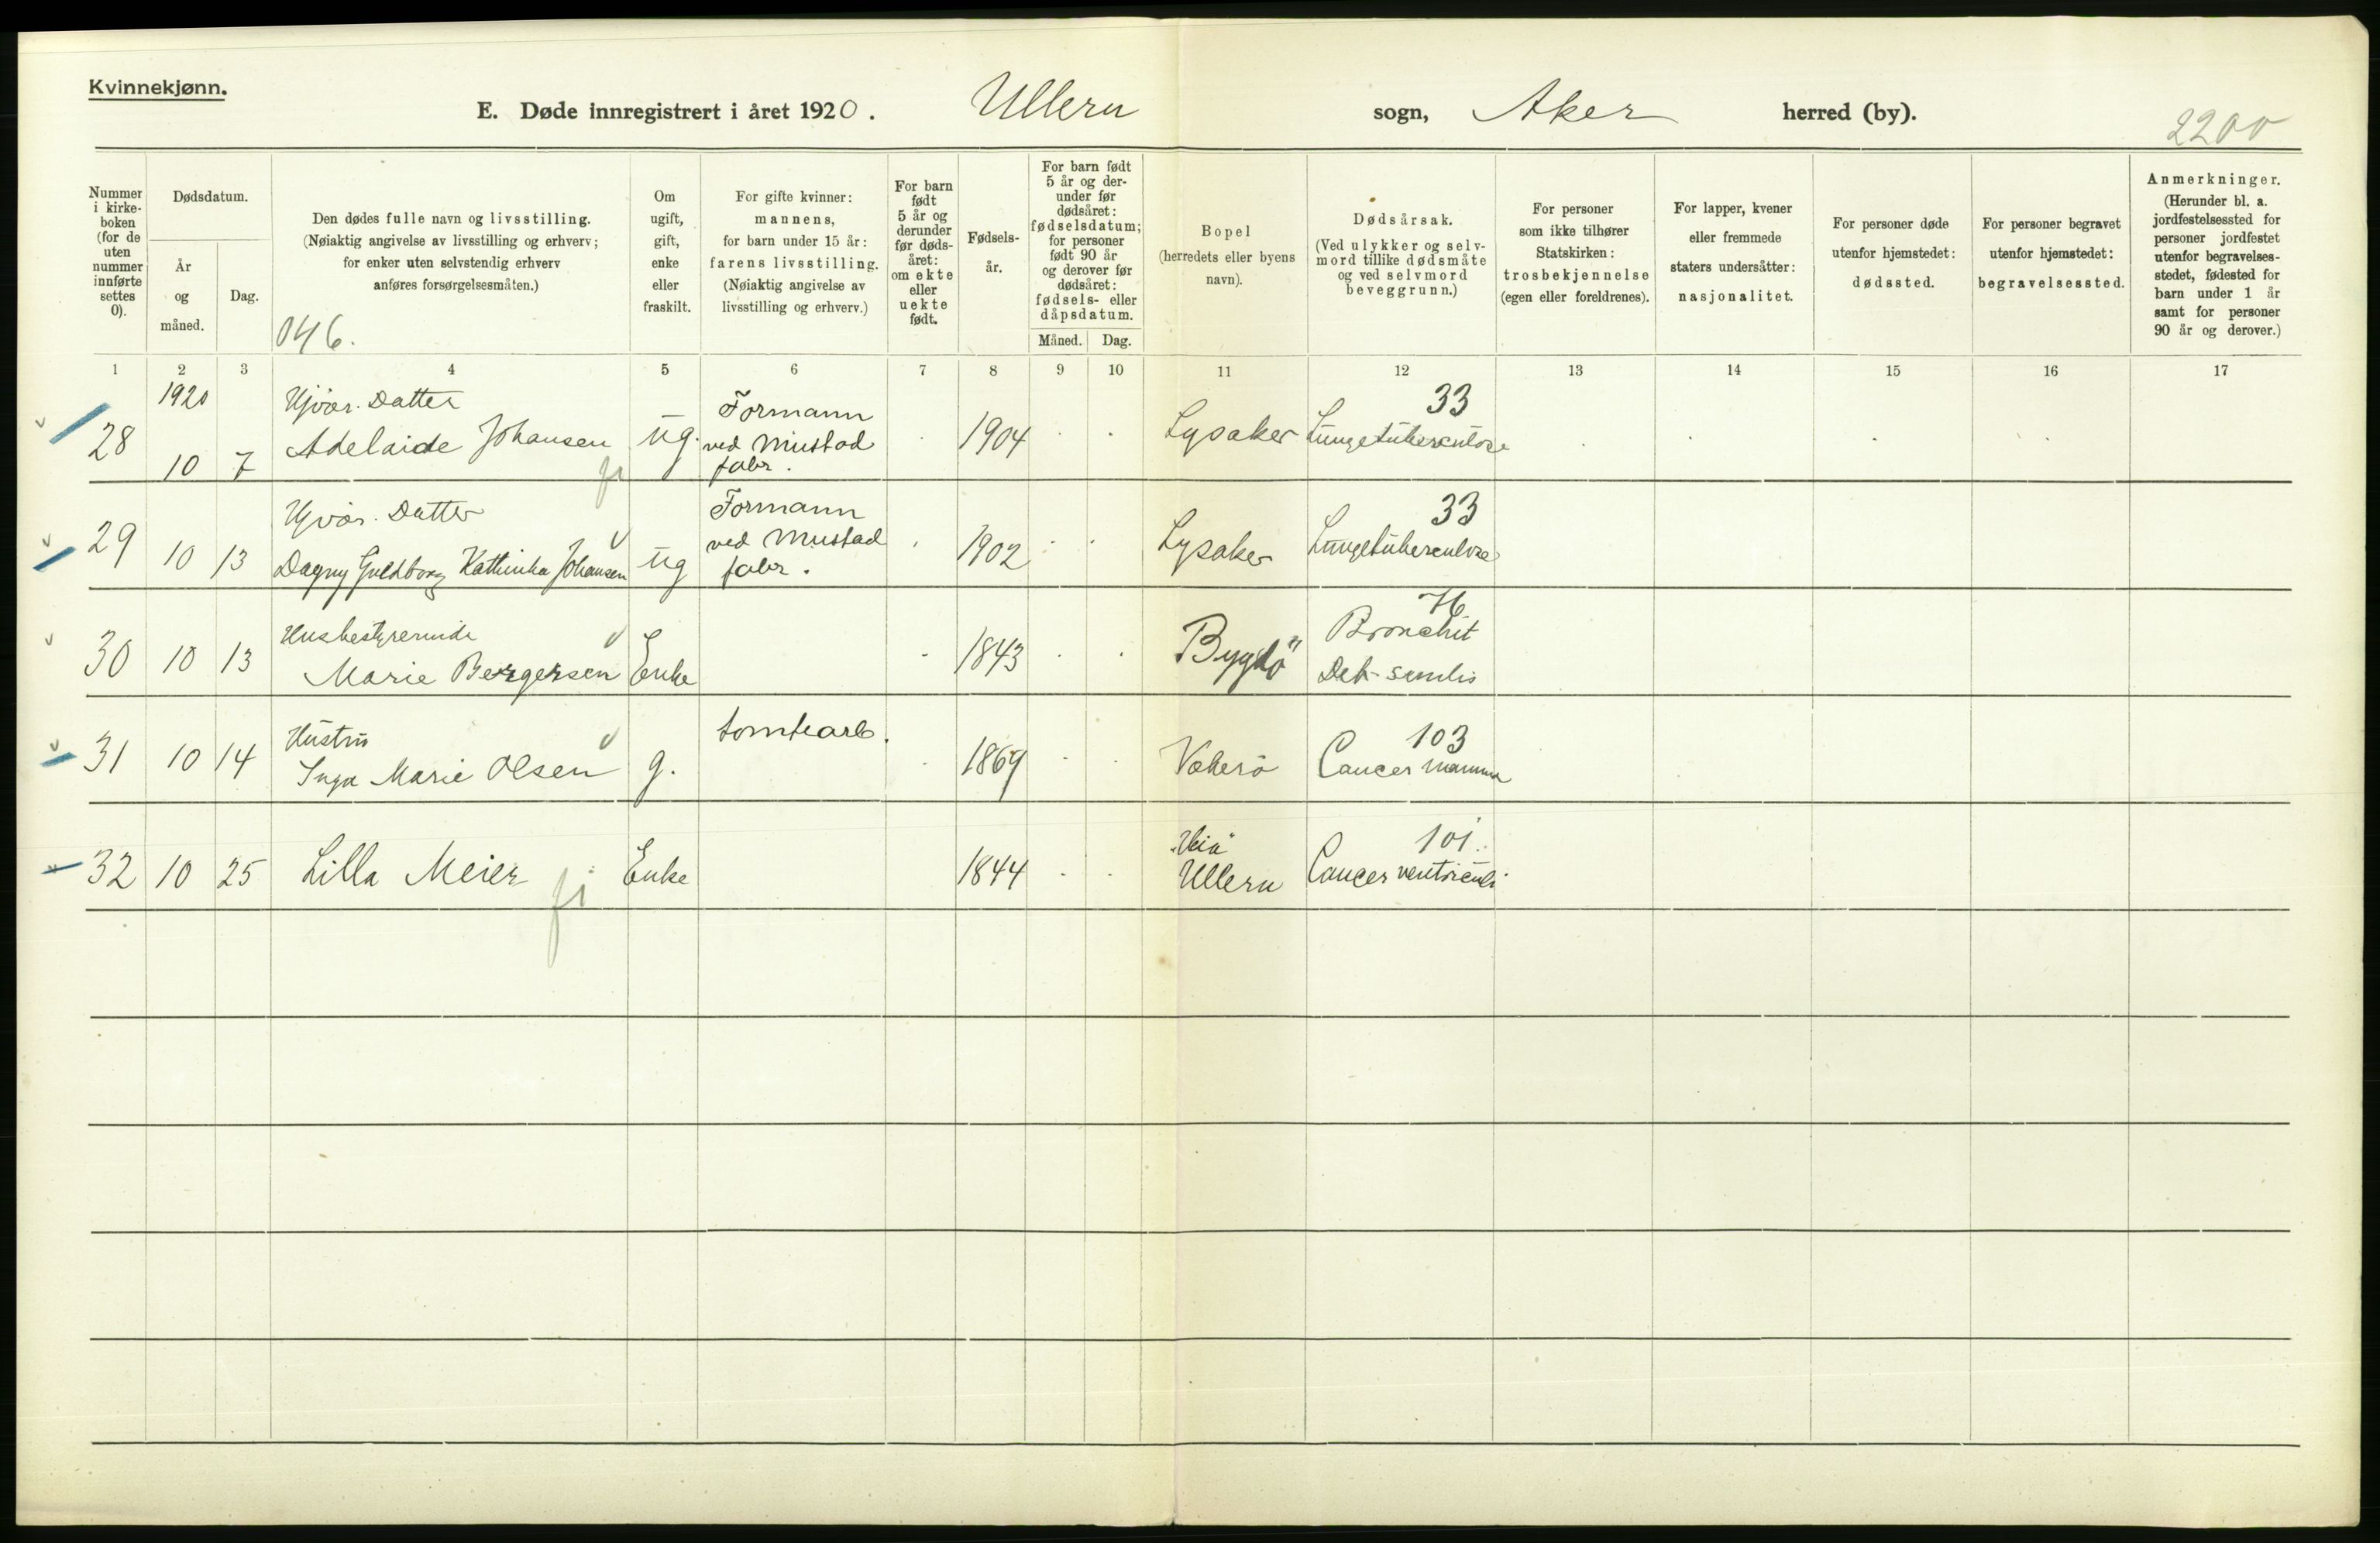 Kvinnekjønn.
E. Døde innregistrert i året 1920. Ullern sogn, Aker herred (by). 2200
Nummer i kirke-boken (for de uten nummer innførte settes 0).
Dødsdatum.
År og måned.
Dag.
Den dødes fulle navn og livsstilling.
(Nøiaktig angivelse av livsstilling og erhverv;
for enker uten selvstendig erhverv
anføres forsørgelsesmåten.)
046.
Om ugift, gift, enke eller fraskilt.
For gifte kvinner:
mannens,
for barn under 15 år:
farens livsstilling.
(Nøiaktig angivelse av
livsstilling og erhverv.)
For barn født 5 år og derunder før døds-året: om ekte eller uekte født.
Fødsels-år.
For barn født
5 år og der-
under før
dødsåret:
fødselsdatum;
for personer
født 90 år
og derover før
dødsåret:
fødsels- eller
dåpsdatum.
Måned. Dag.
Bopel
(herredets eller byens
navn).
Dødsårsak.
(Ved ulykker og selv-
mord tillike dødsmåte
og ved selvmord
beveggrunn.)
For personer
som ikke tilhører
Statskirken:
trosbekjennelse
(egen eller foreldrenes).
For lapper, kvener
eller fremmede
staters undersåtter:
nasjonalitet.
For personer døde
utenfor hjemstedet:
dødssted.
For personer begravet
utenfor hjemstedet:
begravelsessted.
Anmerkninger.
(Herunder bl. a.
jordfestelsessted for
personer jordfestet
utenfor begravelses-
stedet, fødested for
barn under 1 år
samt for personer
90 år og derover.)
1 2 3 4 5 6 7 8 9 10 11 12 13 14 15 16 17
1920
28 10 7 Hjvær. Datter
Adelaide Johansen ug. Formann
ved Mustad
fabr. 1904 Lysaker 33
Lungetuberculose
29 10 13 Hjvær. Datter
Dagny Guldborg Kathinka Johansen ug Formann
ved Mustad
fabr. 1902 Lysaker 33
Lungetuberculose
30 10 13 Husbestyrerinde
Marie Bergersen Enke 1843 Bygdö 76
Bronchit
Deb. senilis
31 10 14 Hustru
Inga Marie Olsen g. tomtearb. 1869 Vækerö 103
Cancer mamma
32 10 25 Lilla Meier Enke 1844
Ullern 101.
Cancer ventriculi